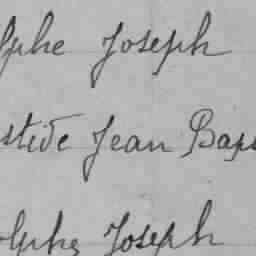 lphe Joseph
stide Jean Bap
olphe Joseph